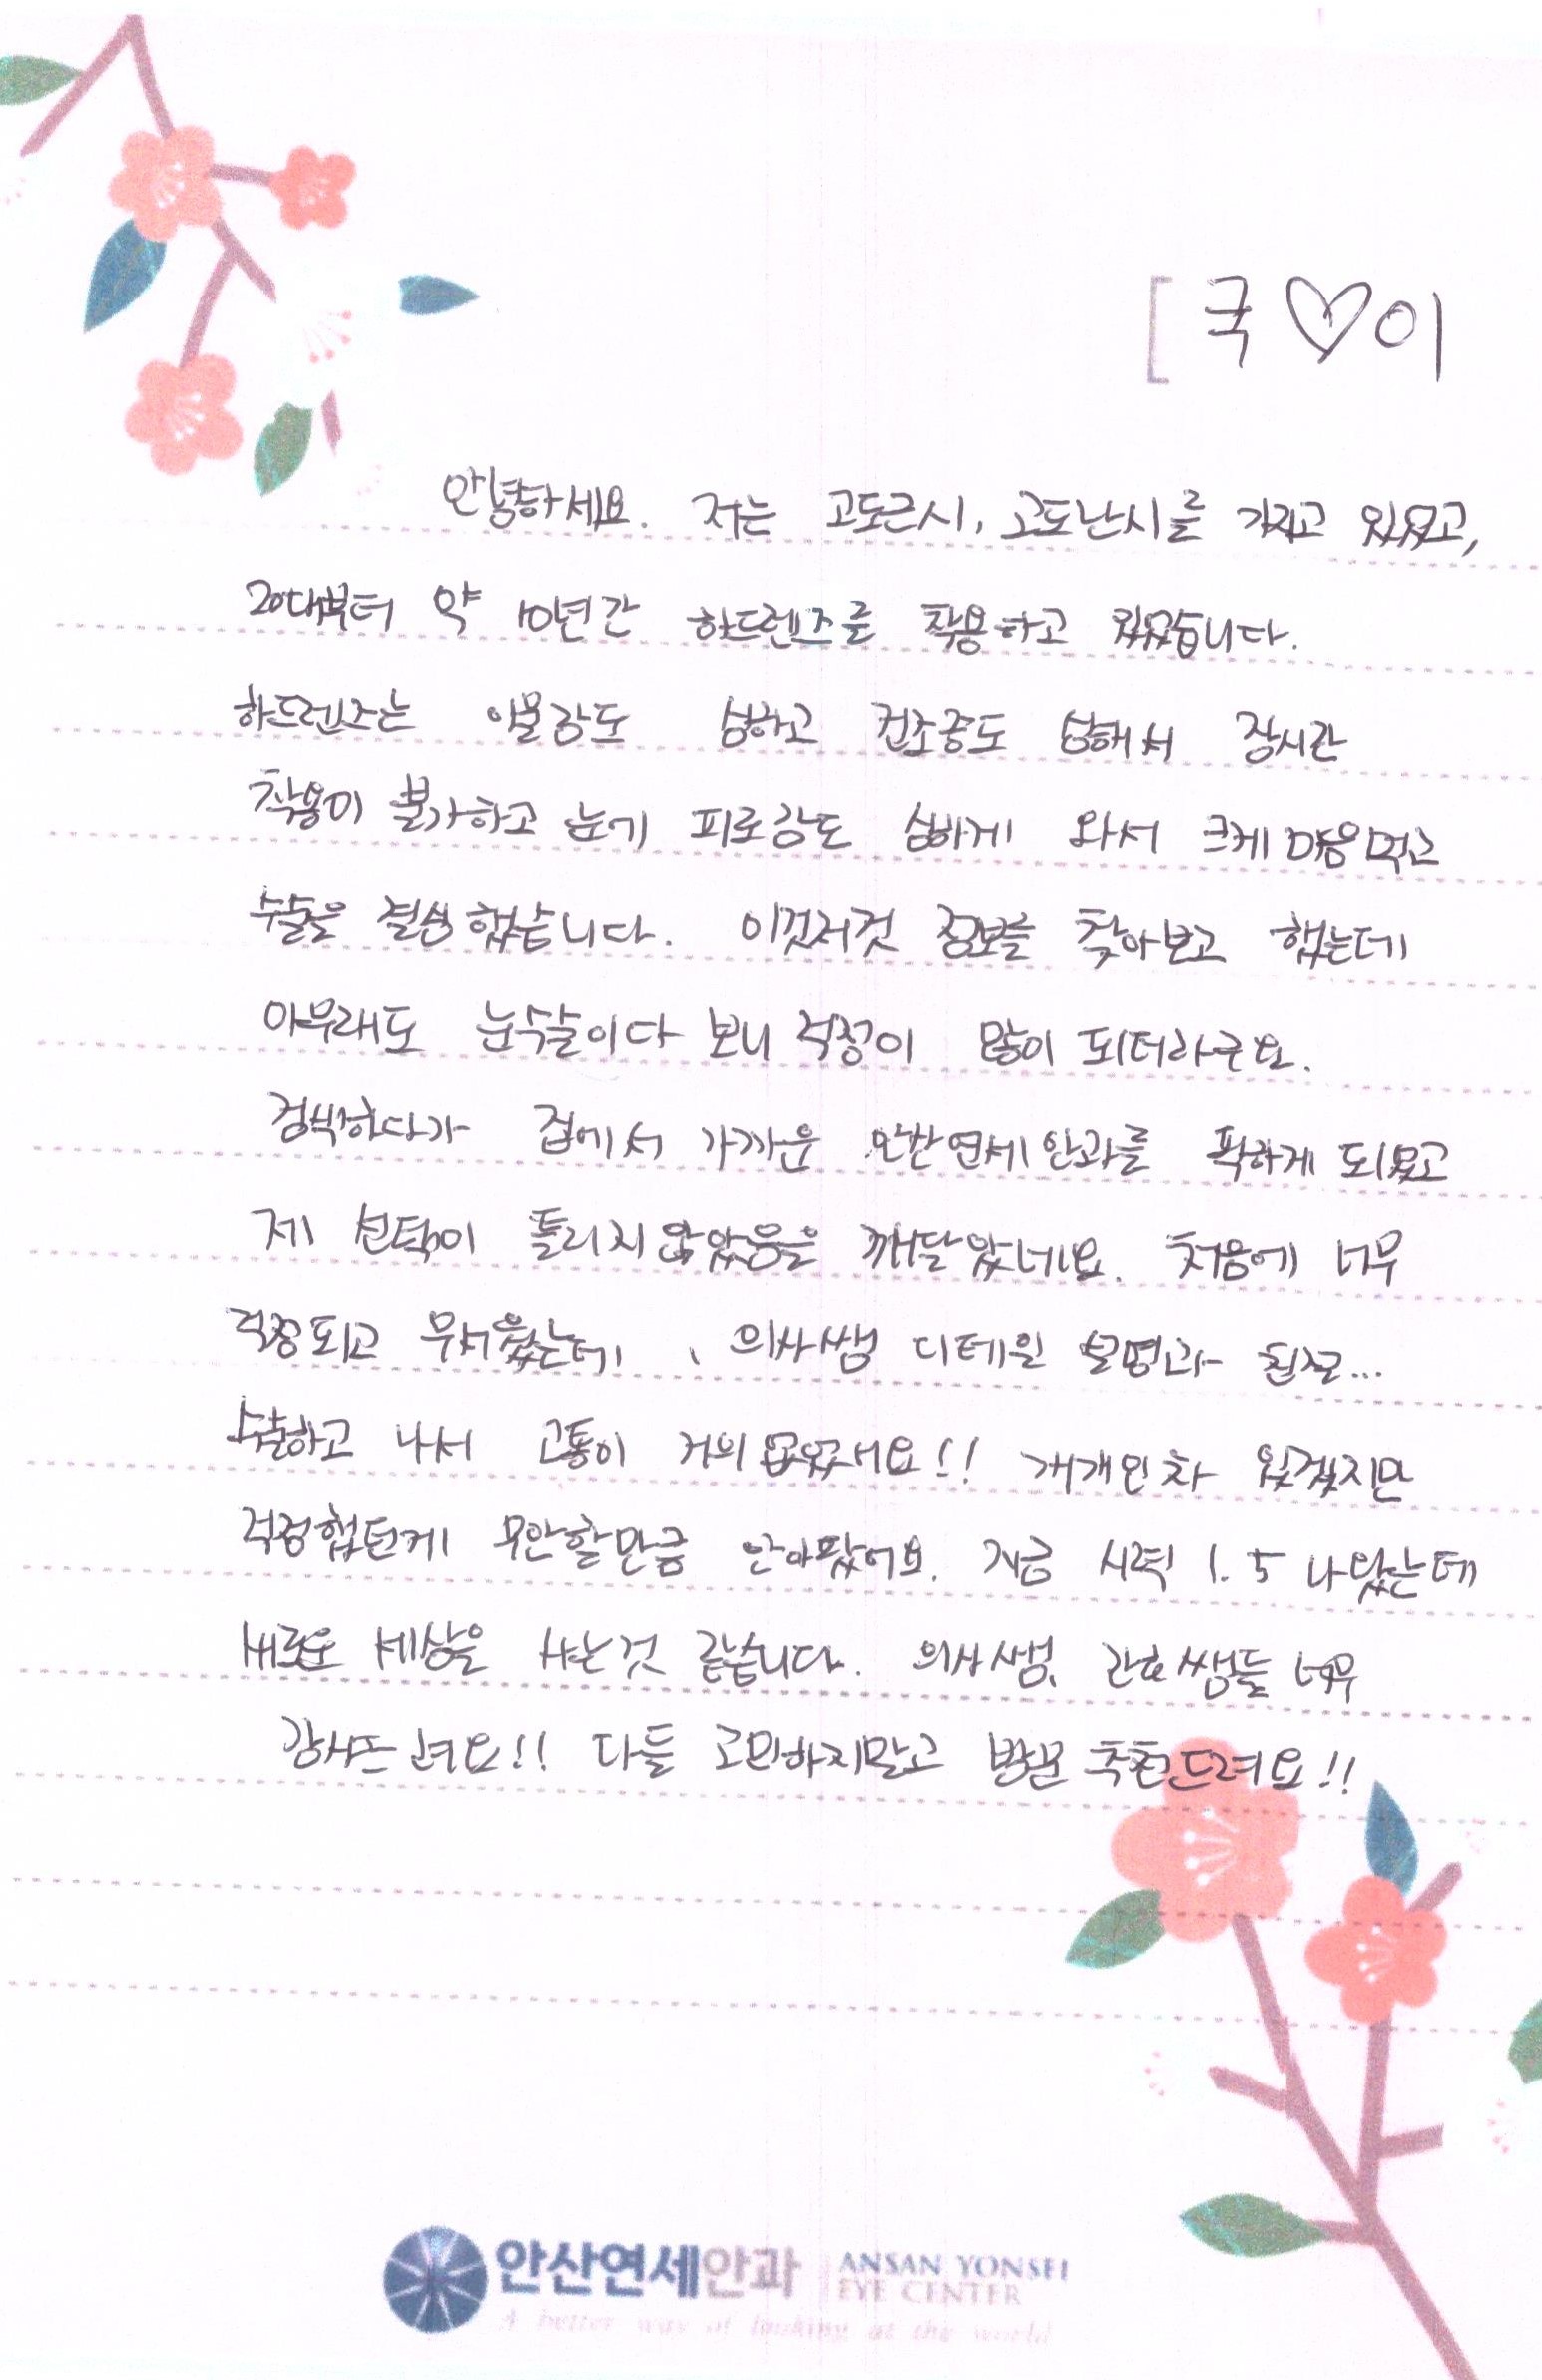 [ 국♡이
안녕하세요. 저는 고도근시, 고도난시를 가지고 있었고,
20대부터 약 10년간 하드렌즈를 착용하고 있었습니다.
하드렌즈는 이물감도 심하고 건조증도 심해서 장시간
착용이 불가하고 눈에 피로감도 심하게 와서 크게 마음먹고
수술을 결심했습니다. 이것저것 정보를 찾아보고 했는데
아무래도 눈수술이다 보니 걱정이 많이 되더라구요.
검색하다가 집에서 가까운 안산연세안과를 픽하게 되었고
제 선택이 틀리지 않았음을 깨달았네요. 처음에 너무
걱정되고 무서웠는데, 의사쌤 디테일 설명과 친절...
수술하고 나서 고통이 거의 없었어요!! 개개인차 있겠지만
걱정했던게 무안할만큼 안아팠어요. 지금 시력 1.5 나왔는데
새로운 세상을 사는것 같습니다. 의사쌤, 간호쌤들 너무
감사드려요!! 다들 고민하지말고 방문 추천드려요!!
안산연세안과 | ANSAN YONSEI
EYE CENTER
A better way of looking at the world